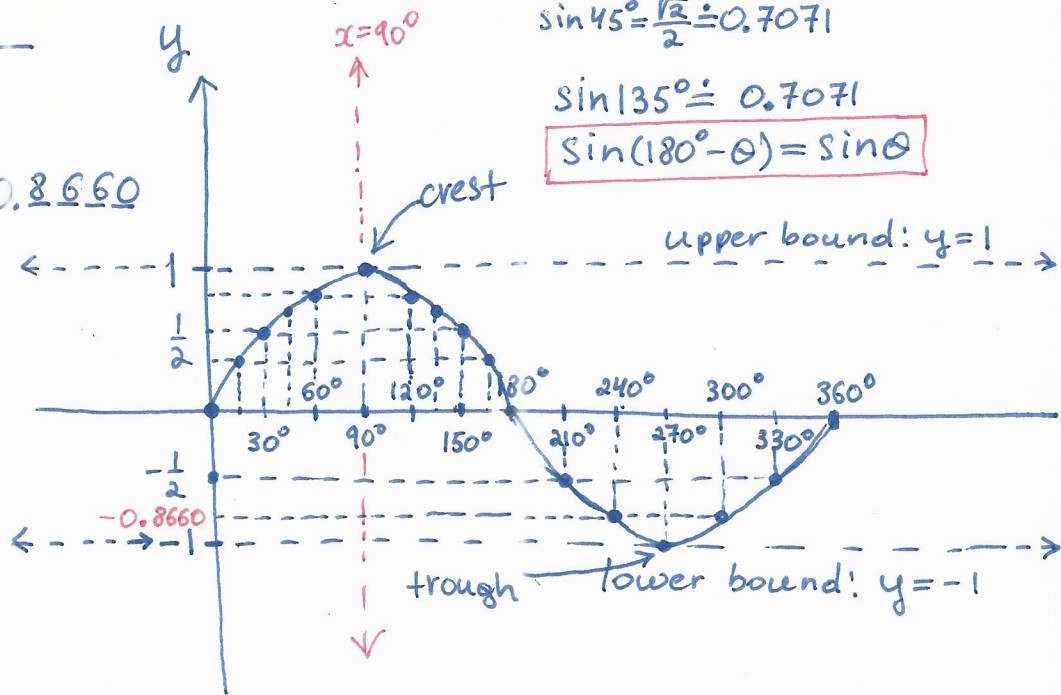 sin45°=√2/2≐0.7071
x=90°
y
sin135°≐ 0.7071
sin(180°-θ)=sinθ
0.8660
crest
upper bound: y=1
1
1/2
60° 120° 180° 240° 300° 360°
30° 90° 150° 210° 270° 330°
-1/2
-0.8660
-1
trough
lower bound: y=-1